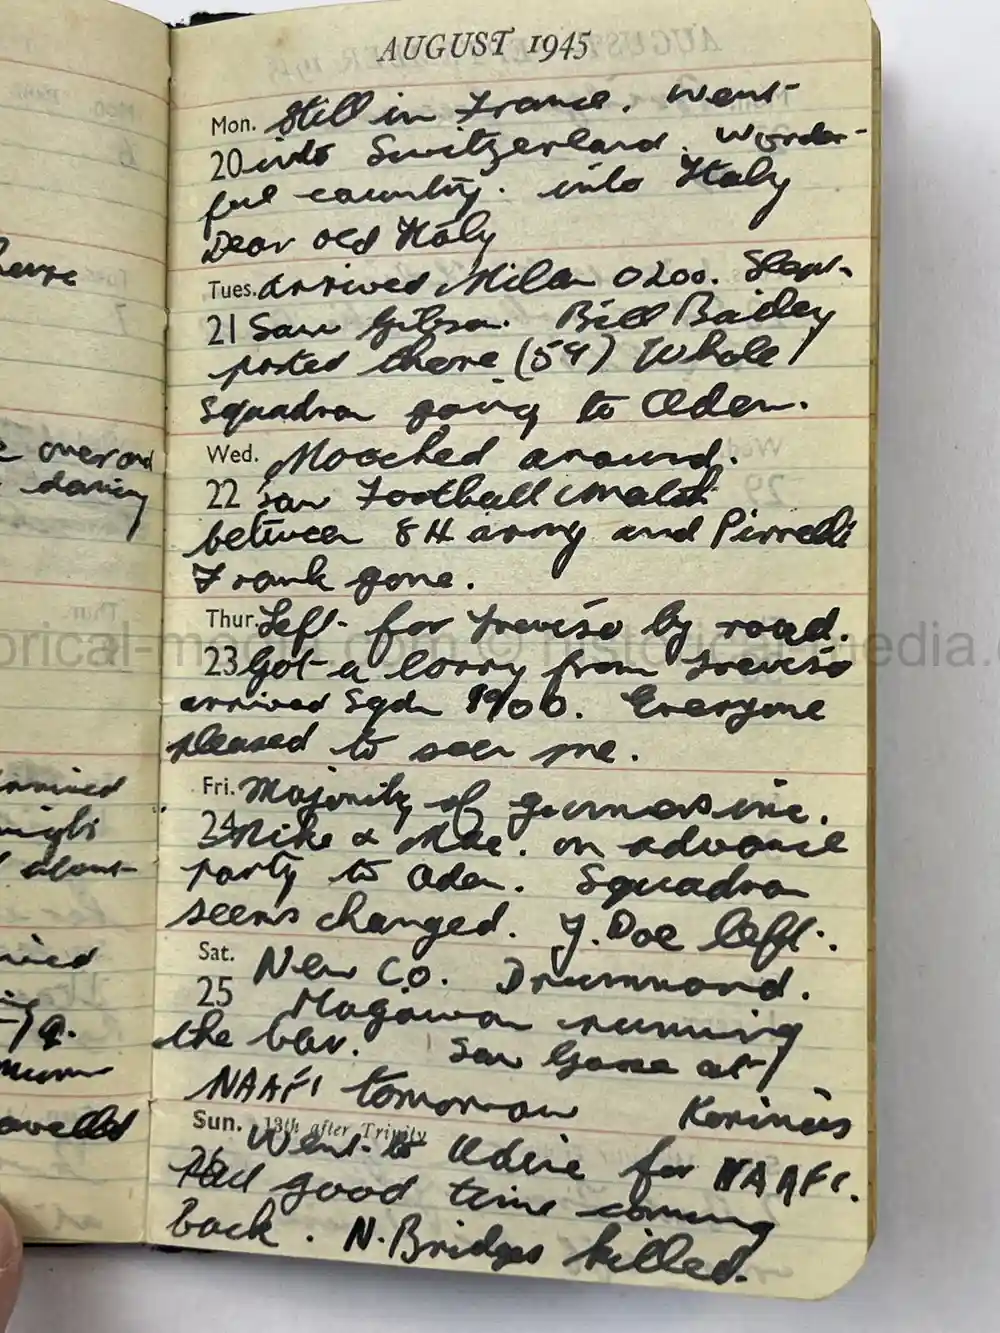 AUGUST 1945
Mon. Still in France. Went
20 into Switzerland. Wonder-
ful country. into Italy
Dear old Italy
Tues. Arrived Milan 0200. Slept.
21 Saw Gibson. Bill Bailey
posted there (59) Whole
Squadron going to Aden.
Wed. Mooched around.
22 Saw Football match
between 8th army and Pirrelli
Frank gone.
Thur. Left for Treviso by road.
23 Got a lorry from Treviso
arrived Sqdn 1900. Everyone
pleased to see me.
Fri. Majority of gunners
24 Mike & Mac. on advance
party to Aden. Squadron
seems changed. J. Doe left.
Sat. New CO. Drummond.
25 Magowan running
the bar. Saw Game at
NAAFI tomorrow
Sun. 13th after Trinity
26 Went to Udine for NAAFI.
Had good time coming
back. N. Bridges killed.
here
over and
daring
arrived
night
about
travelled
historical-media.com © historical-media.com